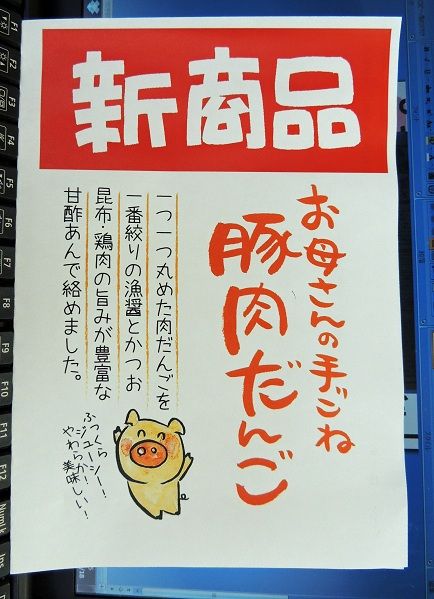 新商品
お母さんの手ごね
豚肉だんご
一つ一つ丸めた肉だんごを
一番絞りの漁醤とかつお
昆布・鶏肉の旨みが豊富な
甘酢あんで絡めました。
ふっくら
ジューシー!
やわらか美味しい!
F1
F2
F3
F4
F5
F6
F7
F8
F9
F10
F11
F12
NumLk
Ins